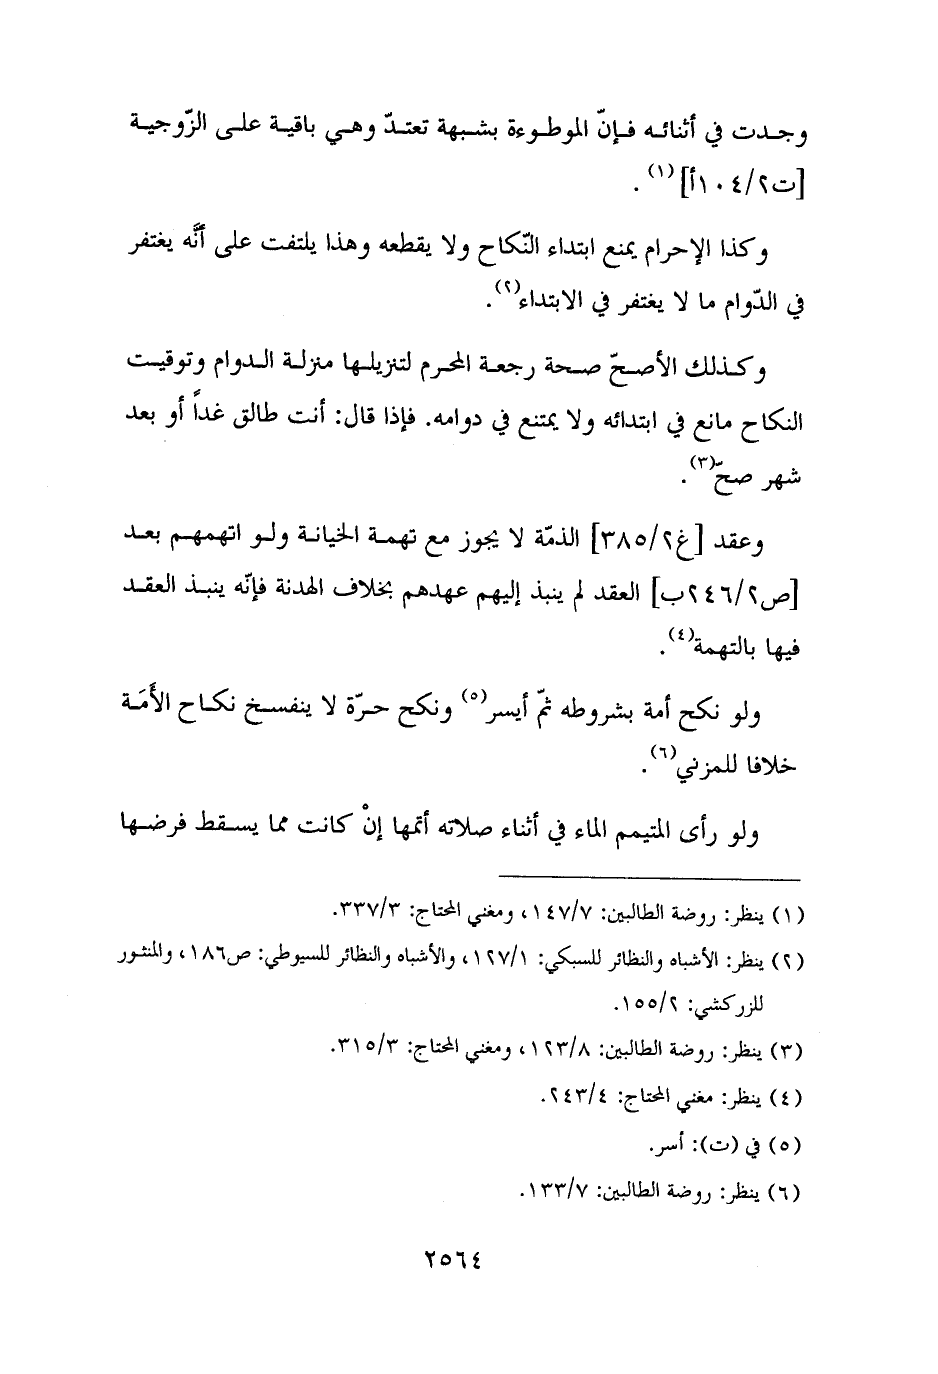 وجدت في أثنائه فإنّ الموطوءة بشبهة تعتدّ وهي باقية على الزّوجية
[ت٢/١٠٤أ](١).
وكذا الإحرام يمنع ابتداء النّكاح ولا يقطعه وهذا يلتفت على أنَّه يغتفر
في الدّوام ما لا يغتفر في الابتداء(٢).
وكذلك الأصحّ صحة رجعة المحرم لتنزيلها منزلة الدوام وتوقيت
النكاح مانع في ابتدائه ولا يمتنع في دوامه. فإذا قال: أنت طالق غداً أو بعد
شهر صحّ(٣).
وعقد [غ٢/٣٨٥] الذمّة لا يجوز مع تهمة الخيانة ولو اتهمهم بعد
[ص٢/٢٤٦ب] العقد لم ينبذ إليهم عهدهم بخلاف الهدنة فإنّه ينبذ العقد
فيها بالتهمة(٤).
ولو نكح أمة بشروطه ثمّ أيسر(٥) ونكح حرّة لا ينفسخ نكاح الأَمَة
خلافا للمزني(٦).
ولو رأى المتيمم الماء في أثناء صلاته أتمها إنْ كانت مما يسقط فرضها
(١) ينظر: روضة الطالبين: ١٤٧/٧، ومغني المحتاج: ٣٣٧/٣.
(٢) ينظر: الأشباه والنظائر للسبكي: ١٢٧/١، والأشباه والنظائر للسيوطي: ص١٨٦، والمنثور
للزركشي: ١٥٥/٢.
(٣) ينظر: روضة الطالبين: ١٢٣/٨، ومغني المحتاج: ٣١٥/٣.
(٤) ينظر: مغني المحتاج: ٢٤٣/٤.
(٥) في (ت): أسر.
(٦) ينظر: روضة الطالبين: ١٣٣/٧.
٢٥٦٤